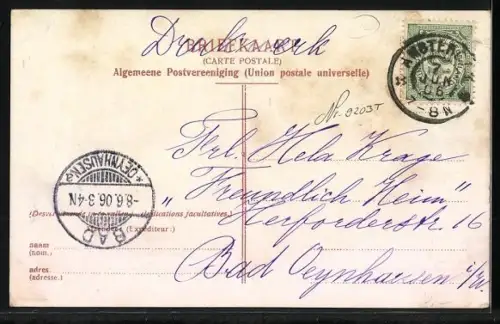 Drucksache
BRIEFKAART
(CARTE POSTALE)
Algemeene Postvereeniging (Union postale universelle)
AMSTERDAM
7-8N
Nr. 9203T
Frl. Hela Krage
"Freundlich Heim"
Herforderstr. 16
Bad Oeynhausen i/W.
BAD
-8.6.06.3-4N
*OEYNHAUSEN*
indications facultatives.)
(Expéditeur):
naam
(nom.)
adres
(adresse.)